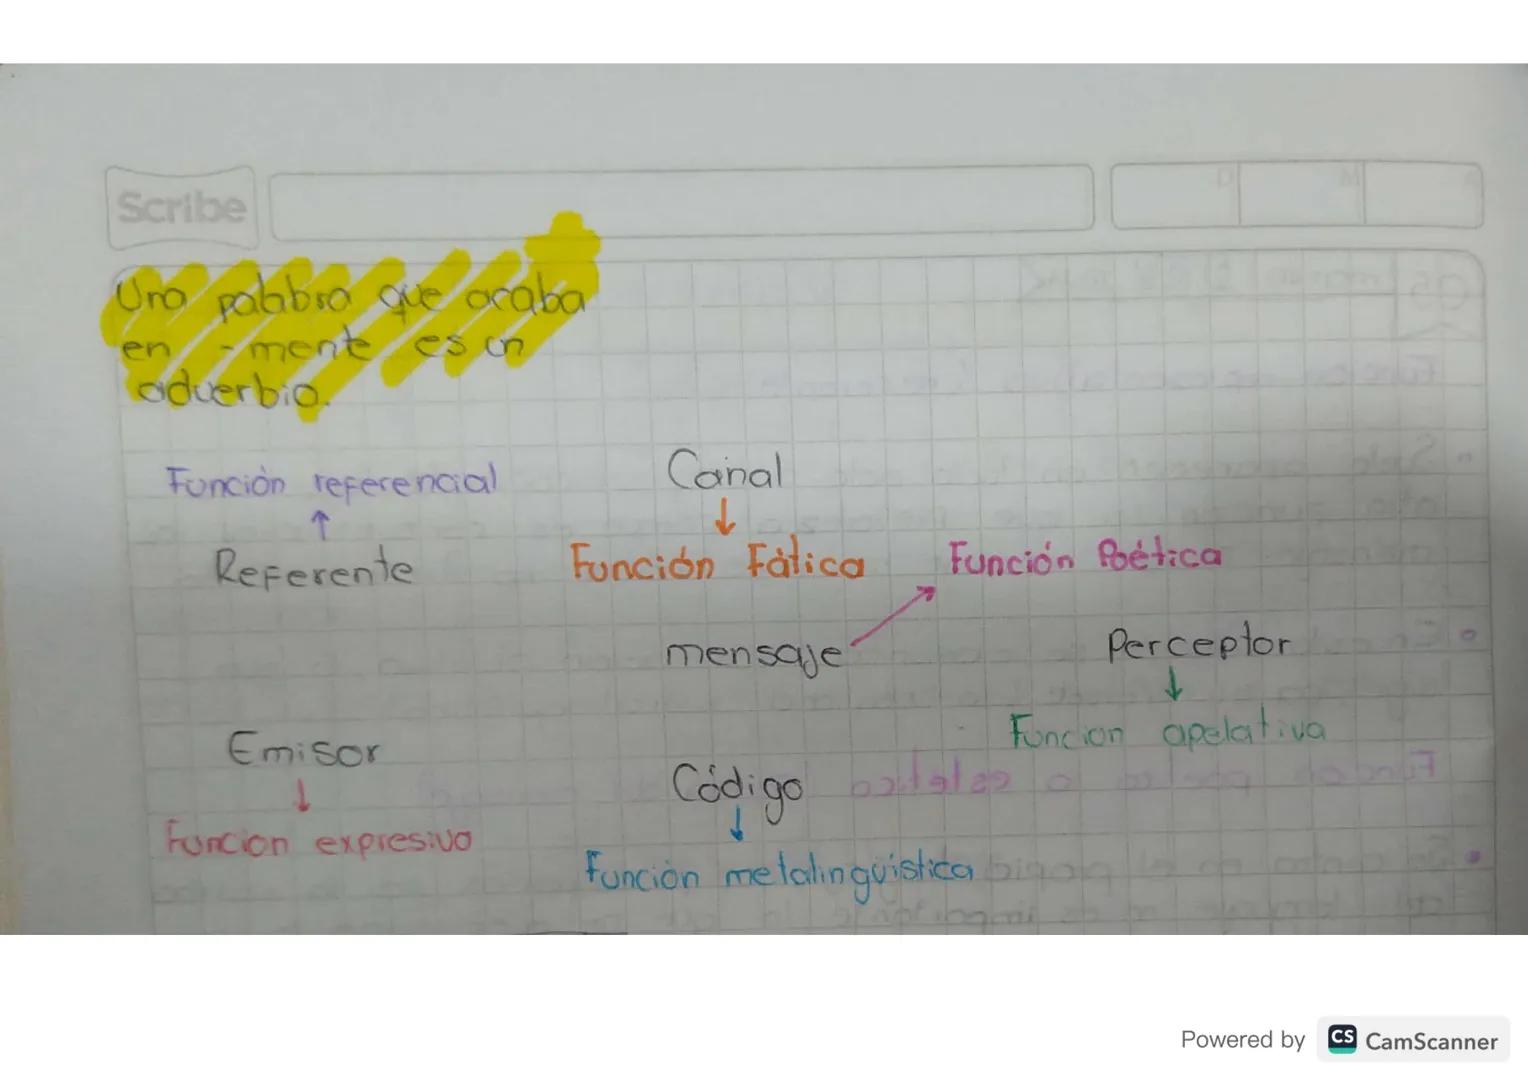 Scribe
D M A
Una palabra que acaba
en -mente es un
adverbio.
Función referencial
Referente
Canal
Función Fática
Función Poética
mensaje
Perceptor
Funcion apelativa
Emisor
Funcion expresiva
Código
Función metalingüistica
Powered by CS CamScanner